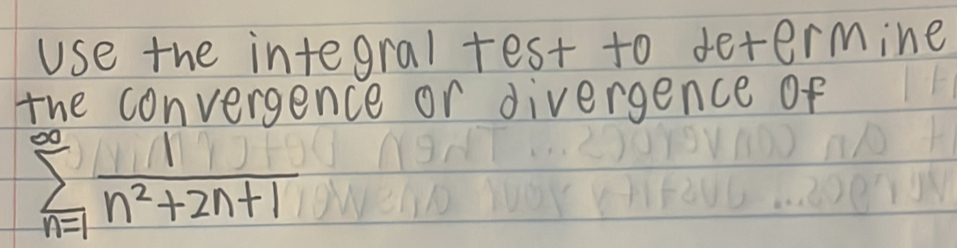 Use the integral test to determine
the convergence or divergence of
∞
∑ 1/(n²+2n+1)
n=1